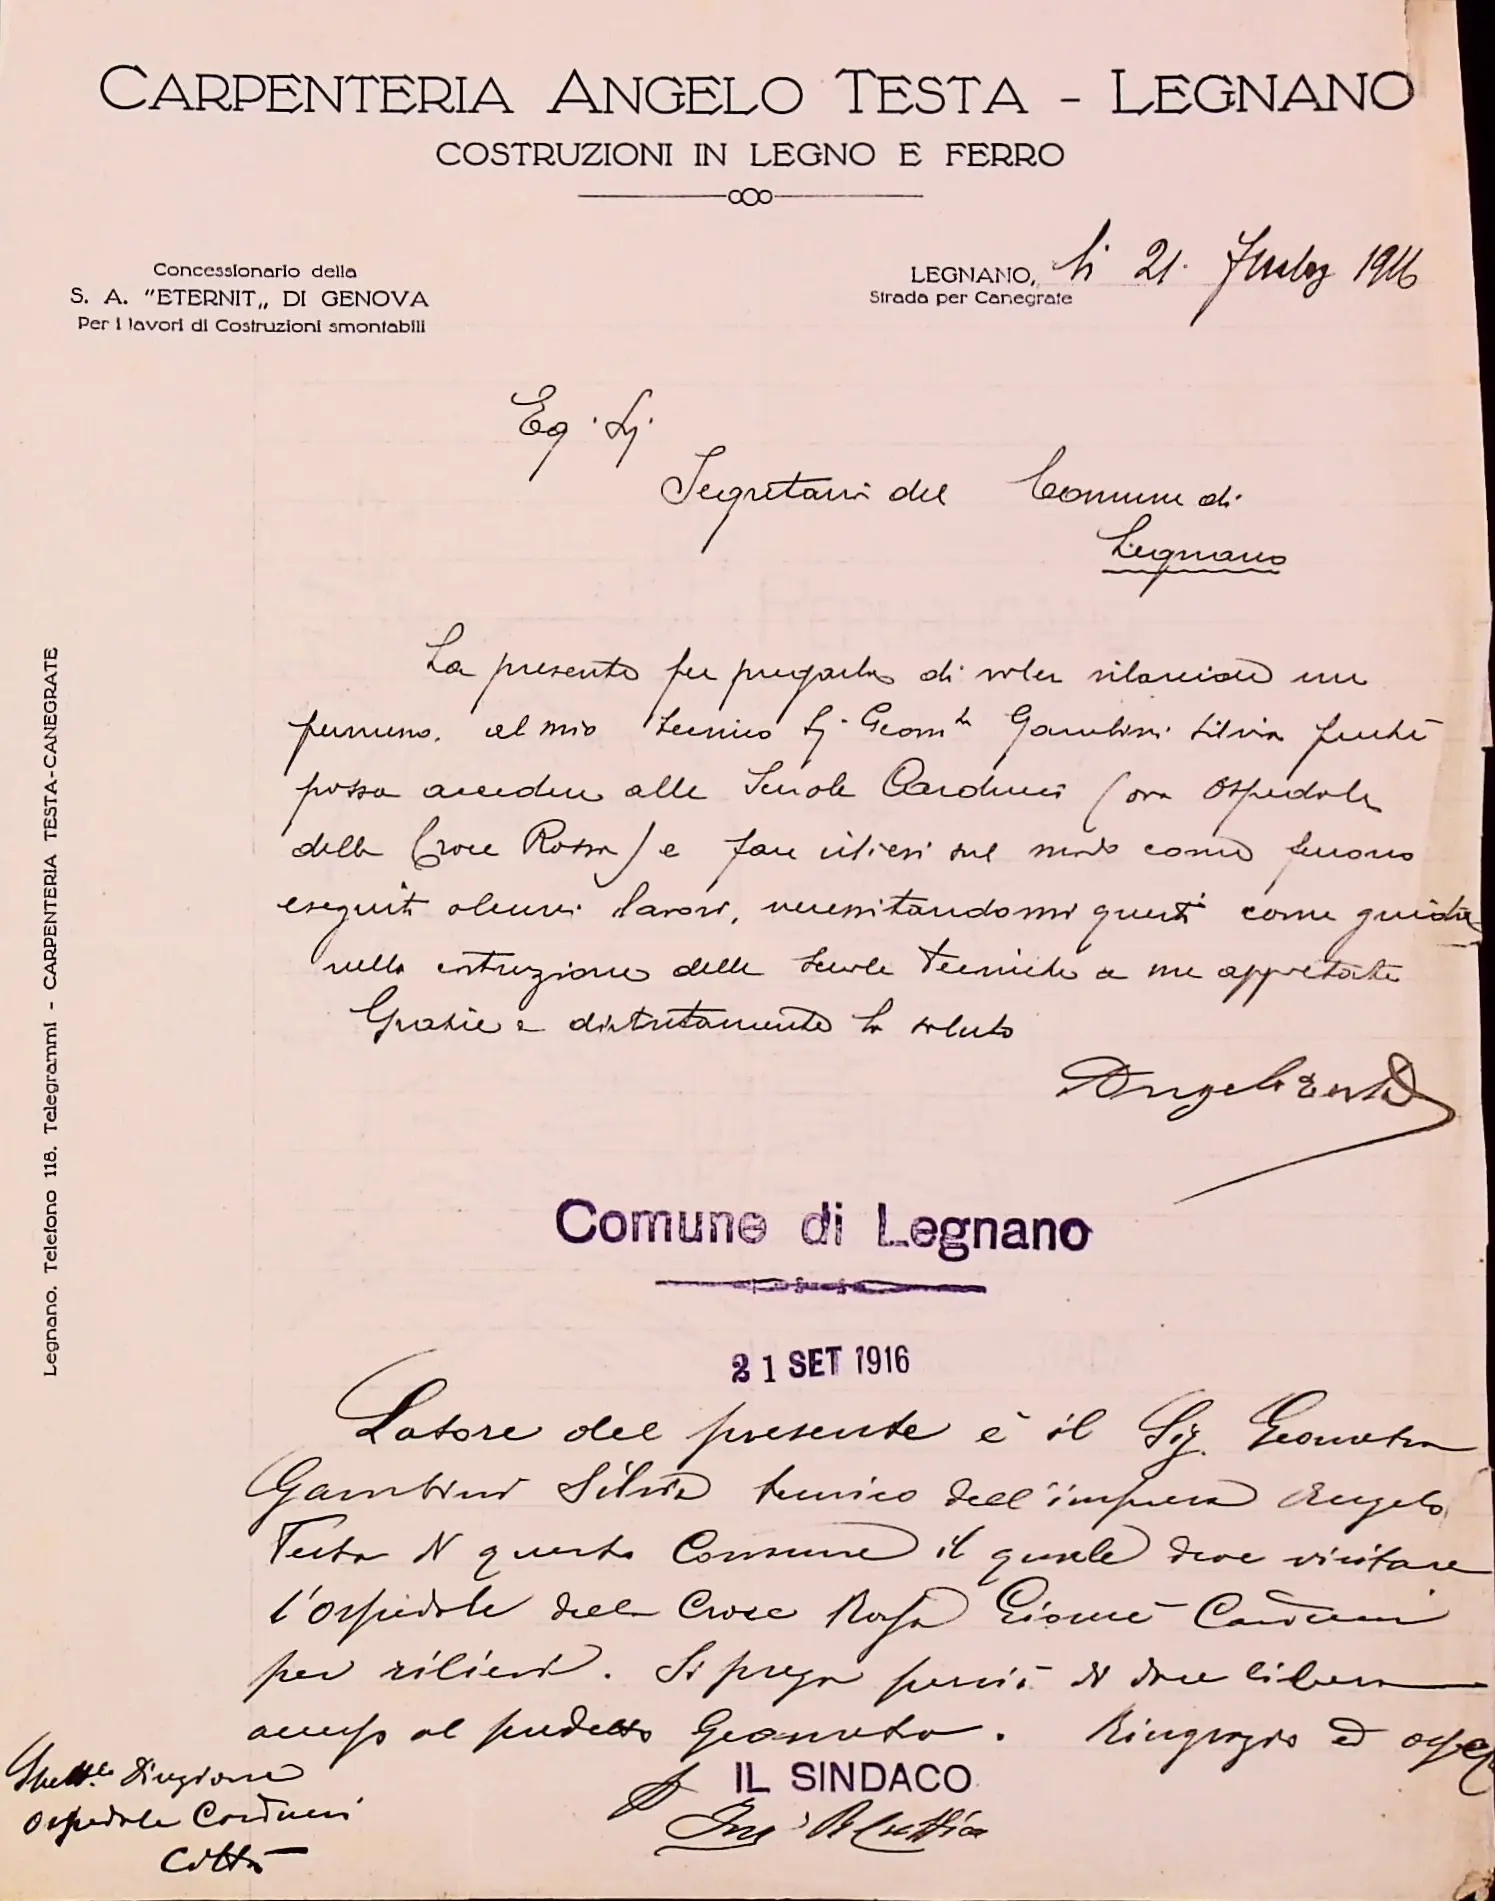 CARPENTERIA ANGELO TESTA - LEGNANO
COSTRUZIONI IN LEGNO E FERRO
Concessionario della
S. A. "ETERNIT„ DI GENOVA
Per i lavori di Costruzioni smontabili
LEGNANO, li 21. 1916
Strada per Canegrate
Eg. Sig.
Segretario del Comune di
Legnano
La presente per pregarla di voler rilasciare un
permesso al mio tecnico Sig. Geom. Gambini Silvio perché
possa accedere alle Scuole Carducci (ora Ospedale
della Croce Rossa) e fare rilievi sul modo come furono
eseguiti alcuni lavori, necessitandomi questi come guida
nella costruzione delle Scuole Tecniche a me appaltate
Grazie e distintamente la saluto
Angelo Testa
Legnano. Telefono 118. Telegrammi - CARPENTERIA TESTA-CANEGRATE
Comune di Legnano
21 SET 1916
Latore del presente è il Sig. Geometra
Gambini Silvio tecnico dell'impresa Angelo
Testa di questo Comune il quale deve visitare
l'ospedale della Croce Rossa Giosuè Carducci
per rilievi. Si prega perciò di dare libero
accesso al predetto Geometra. Ringrazio ed
IL SINDACO
Spett.le Direzione
Ospedale Carducci
Città